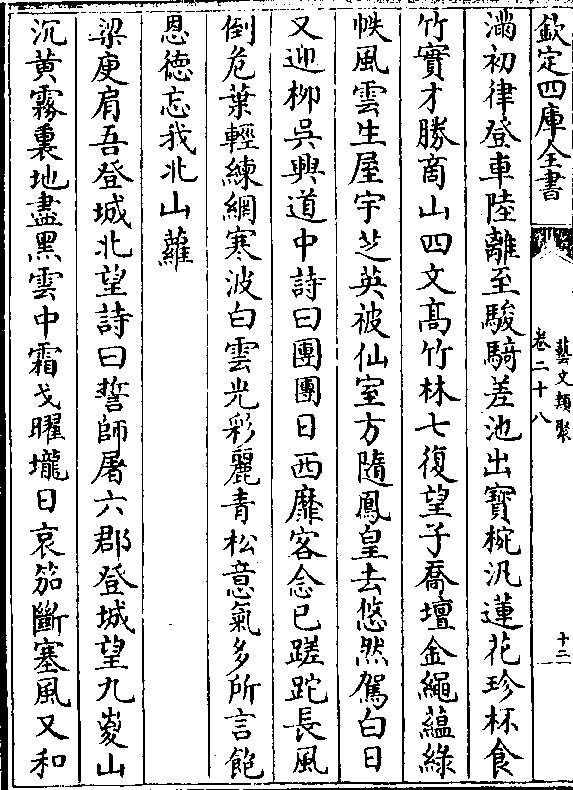 欽定四庫全書
藝文類聚
卷二十八
十二
滿初律登車陸離至駿騎差池出寶椀汎蓮花珍杯食
竹實才勝商山四文髙竹林七復望子喬壇金繩蘊綠
帙風雲生屋宇芝英被仙室方隨鳳皇去悠然駕白日
又迎柳吳興道中詩曰團團日西靡客念已蹉跎長風
倒危葉輕練網寒波白雲光彩麗青松意氣多所言飽
恩德忘我北山蘿
梁庾肩吾登城北望詩曰誓師屠六郡登城望九嵏山
沉黄霧裏地盡黑雲中霜戈曜壠日哀笳斷塞風又和